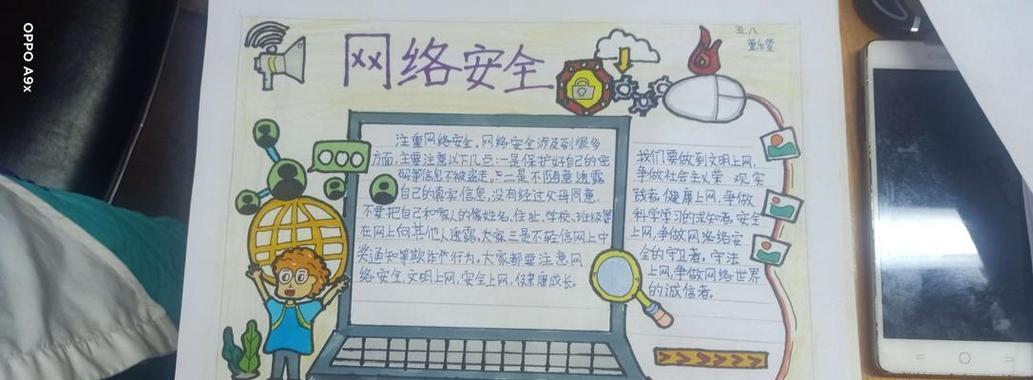 OPPO A9x
五.八
网络安全
注重网络安全。网络安全涉及到很多
方面,主要注意以下几点:一是保护好自己的密
码等信息不被盗走。二是不随意透露
自己的真实信息,没有经过父母同意,
不要把自己和家人的姓名、住址、学校、班级等
在网上向其他人透露。大家三是不轻信网上中
奖通知等欺诈行为,大家都要注意网
络安全,文明上网,安全上网,健康成长。
我们要做到文明上网,
争做社会主义荣 现实
践者,健康上网,争做
科学学习的求知者,安全
上网,争做网络安
全的守卫者。守法
上网,争做网络世界
的诚信者。